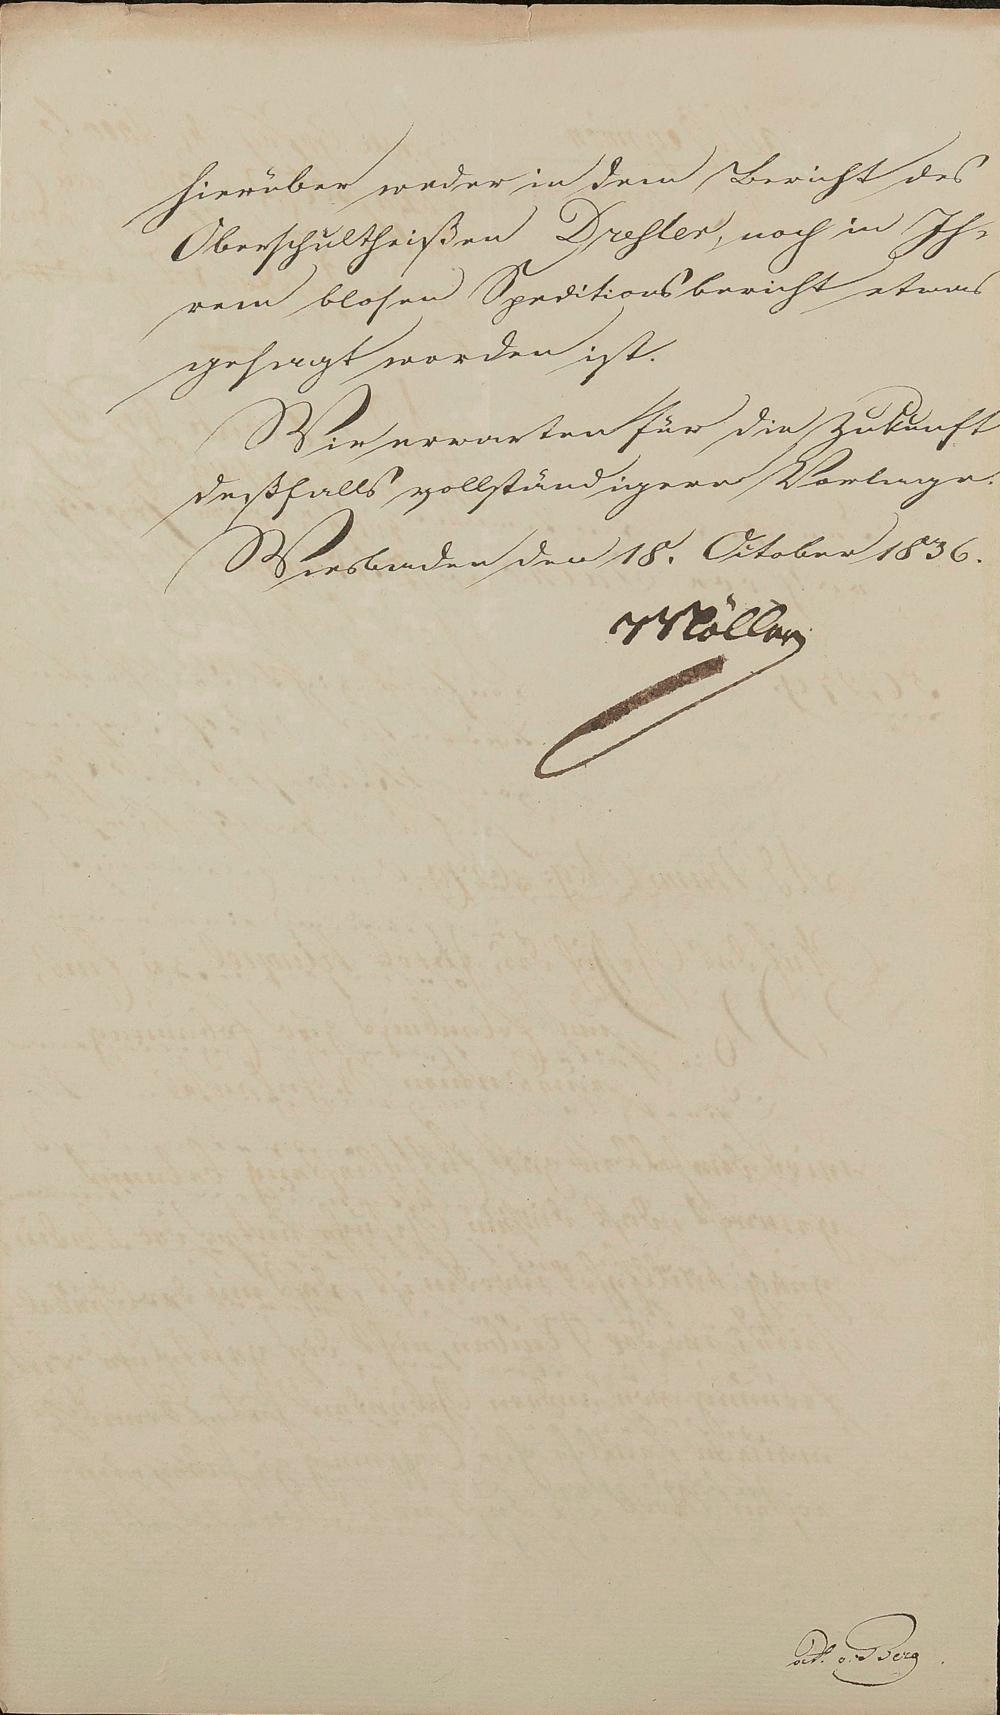 hierüber weder in dem Bericht des
Oberschultheißen Dreßler, noch in Ih-
rem blosen Speditionsbericht etwas
gesagt worden ist.
Wir erwarten für die Zukunft
deßfalls vollständigere Vorlage.
Wiesbaden den 18. October 1836.
Möller
v. Berg